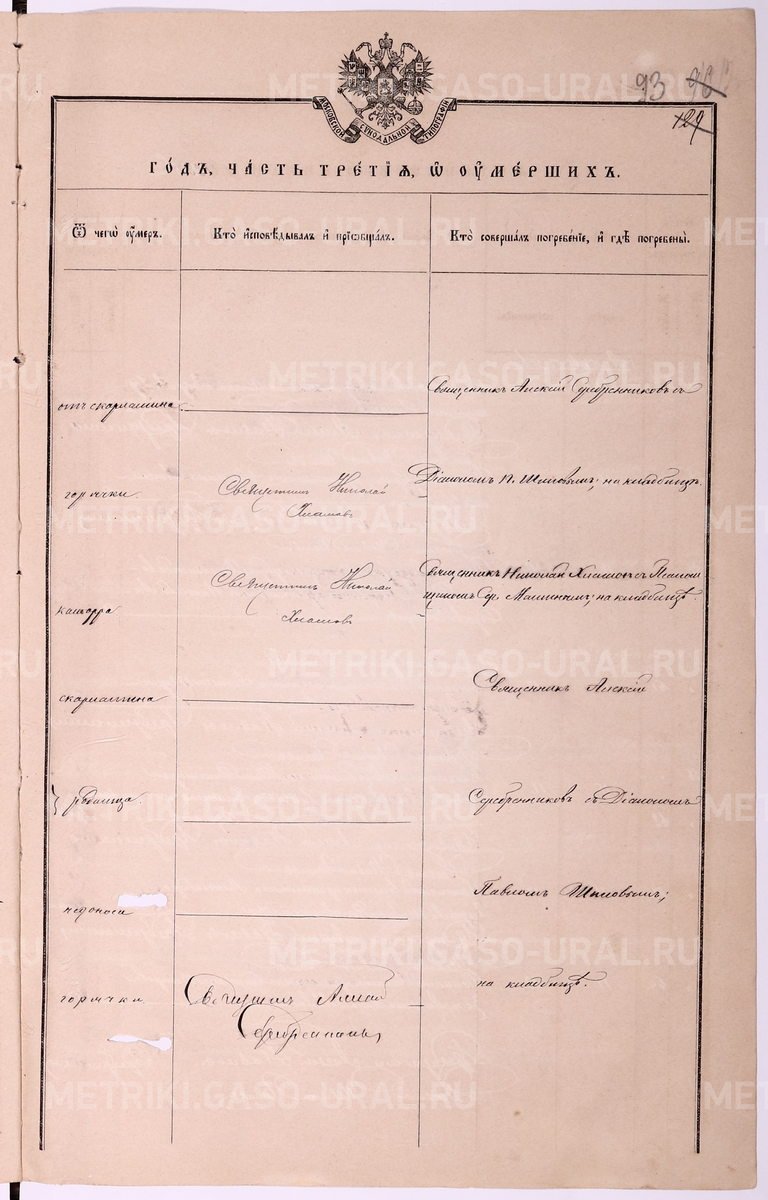 93 90
129
МОСКОВСКОЙ СѴНОДАЛЬНОЙ ТИПОГРАФІИ
ГО́ДЪ, ЧА́СТЬ ТРЕ́ТІѦ, Ѡ҆ ОУ҆МЕ́РШИХЪ.
Ѿ чегѡ̀ оу҆́мер.
Кто̀ и҆сповѣ́дывалъ и҆ пріѡбща́лъ.
Кто̀ соверша́лъ погребе́ніе, и҆ гдѣ̀ погребены̀.
отъ скарлатина
Священникъ Алексій Серебренниковъ съ
горячки
Священникъ Николай
Хламовъ
Діакономъ П. Шиловымъ; на кладбищѣ.
катарра
Священникъ Николай
Хламовъ
Священникъ Николай Хламовъ съ Псалом
щикомъ Гр. ; на кладбищѣ.
скарлатина
Священникъ Алексій
родимца.
Серебренниковъ съ Діакономъ
недоноси
Павломъ Шиловымъ;
горячки
Священникъ Алексій
Серебренниковъ
на кладбищѣ.
METRIKI.GASO-URAL.RU